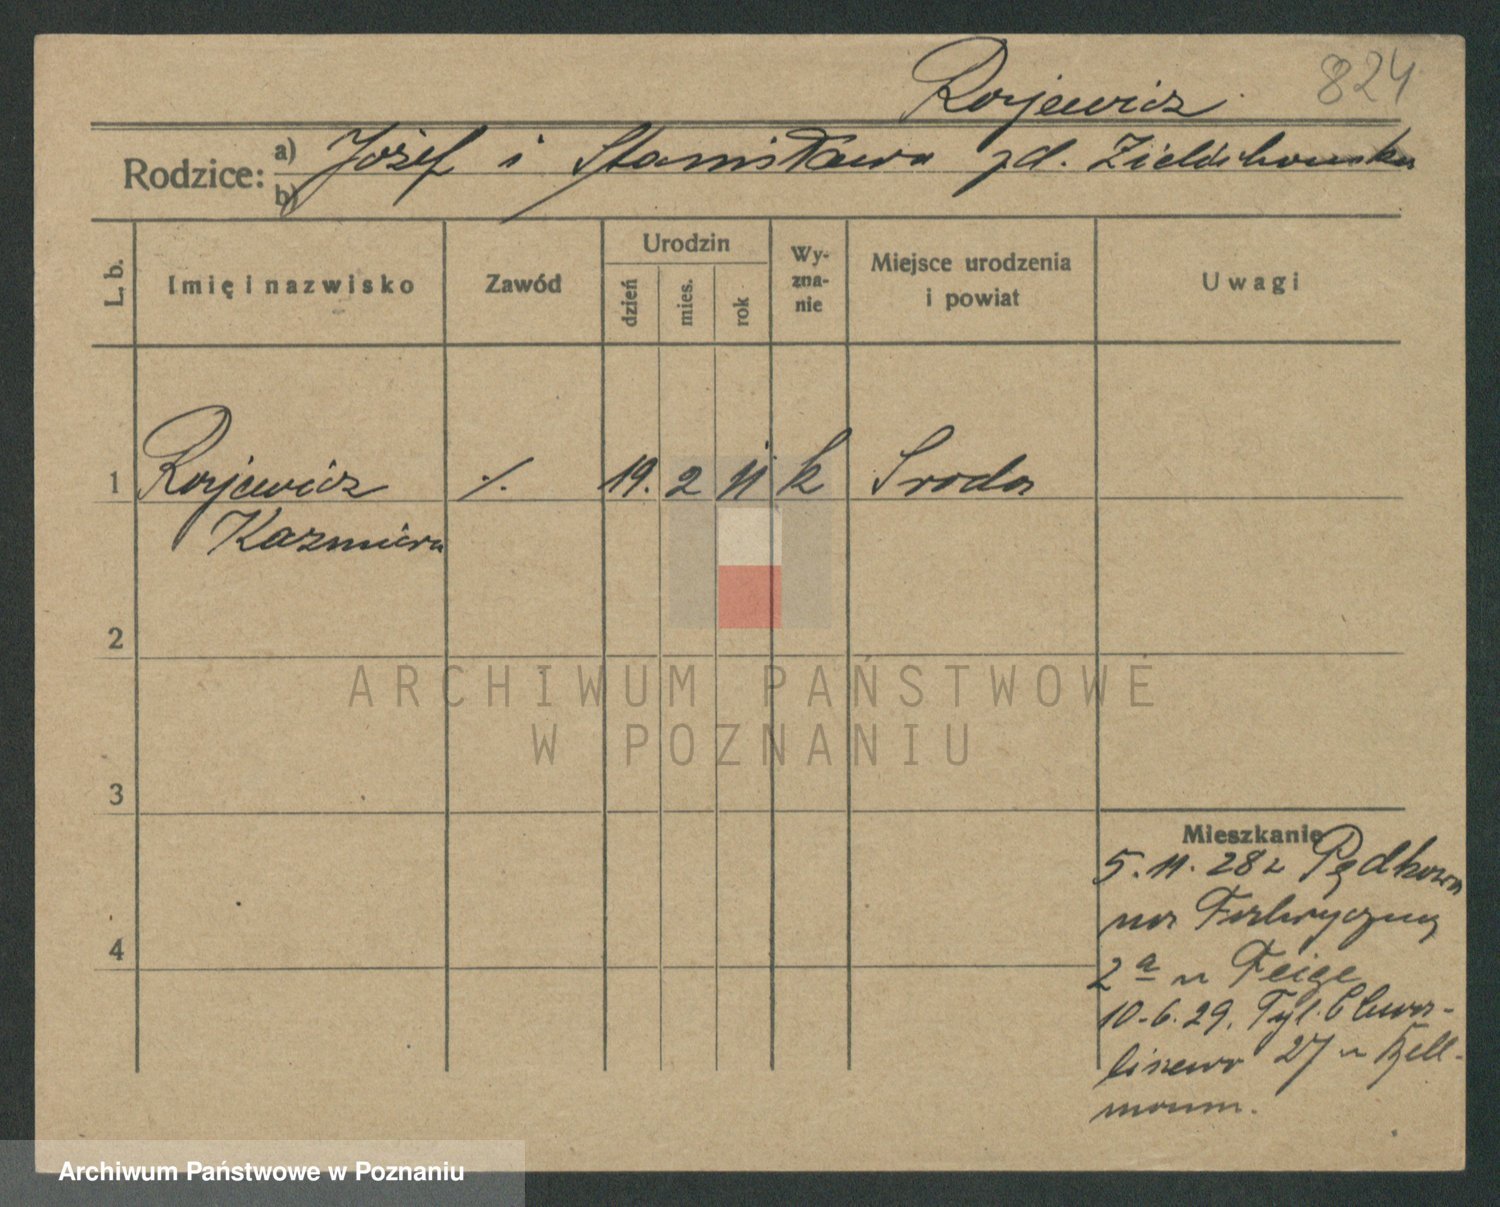 Rajewicz 824
Rodzice: a) Józef i Stanisława zd.
b)
L. b. Imię i nazwisko Zawód Urodzin dzień mies. rok Wyznanie Miejsce urodzenia i powiat Uwagi
1 Rajewicz ./. 19. 2 11 k Sroda
Kazmiera
2
3
4
Mieszkanie
5.11.28 z
na Fabryczną
2a u Feige
10.6.29. Tyl. Chwa-
liszewo 27 u Hell-
mann.
ARCHIWUM PAŃSTWOWE
W POZNANIU
Archiwum Państwowe w Poznaniu